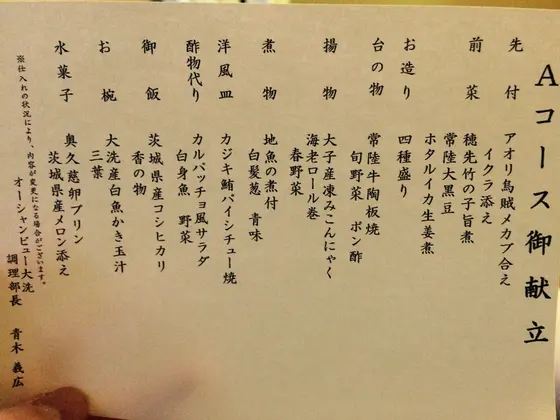 Aコース御献立
先付 アオリ烏賊メカブ合え
イクラ添え
前菜 穂先竹の子旨煮
常陸大黒豆
ホタルイカ生姜煮
お造り 四種盛り
台の物 常陸牛陶板焼
旬野菜 ポン酢
揚物 大子産凍みこんにゃく
海老ロール巻
春野菜
煮物 地魚の煮付
白髪葱 青味
洋風皿 カジキ鮪パイシチュー焼
酢物代り カルパッチョ風サラダ
白身魚 野菜
御飯 茨城県産コシヒカリ
香の物
お椀 大洗産白魚かき玉汁
三葉
水菓子 奥久慈卵プリン
茨城県産メロン添え
※仕入れの状況により、内容が変更になる場合がございます。
オーシャンビュー大洗
調理部長 青木 義広